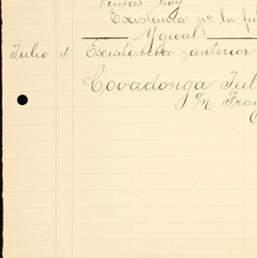 Ventas hoy
Existencia pª la fá
Ygual)
Julio 4 Existencia anterior
Covadonga Jul
Fran